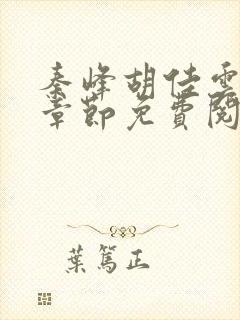 秦峰胡佳雲
章節免費閱
葉篤正